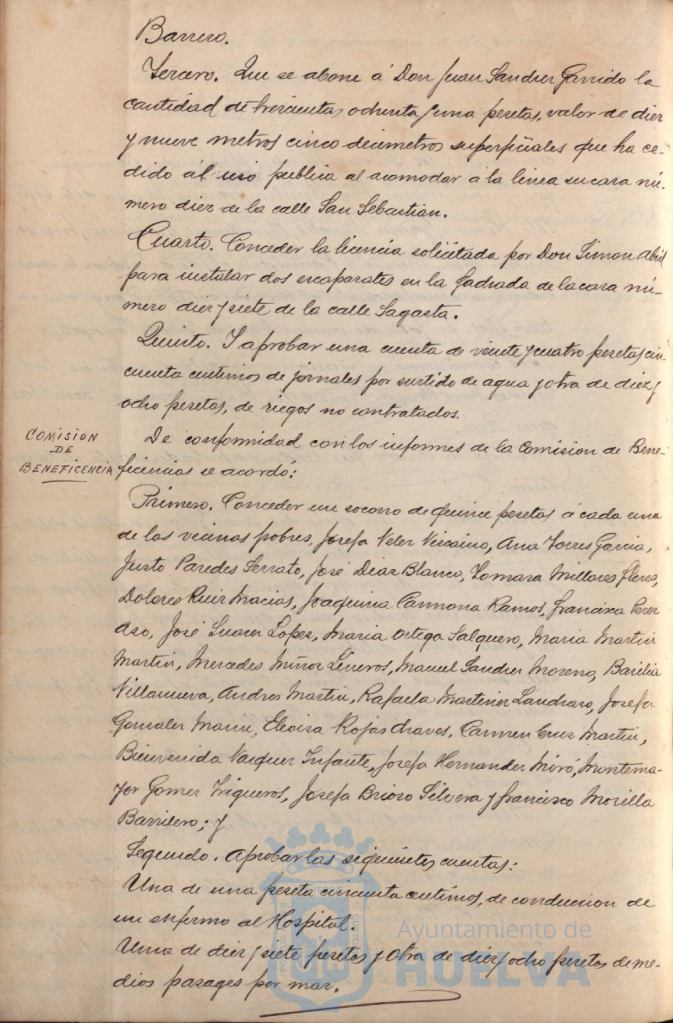 Barrero.
Tercero. Que se abone á Don Juan Sanchez Garrido la
cantidad de trescientas ochenta y una pesetas, valor de diez
y nueve metros cinco decimetros superficiales que ha ce-
dido ál uso publica al acomodar a la linea su casa nú-
mero diez de la calle San Sebastian.
Cuarto. Conceder la licencia solicitada por Don Simon Abril
para instalar dos escaparates en la fachada de la casa nú-
mero diez y siete de la calle Sagasta.
Quinto. Y aprobar una cuenta de veinte y cuatro pesetas cin-
cuenta centimos de jornales por surtido de agua y otra de diez y
ocho pesetas, de riegos no contratados.
COMISION
DE
BENEFICENCIA
De conformidad con los informes de la Comision de Bene-
ficencias se acordó:
Primero. Conceder un socorro de quince pesetas á cada una
de los vecinos pobres, Josefa Velez Viscaino, Ana Torres Garcia,
Justo Paredes Serrato, José Diaz Blanco, Tomasa Millares Flores,
Dolores Ruiz Macias, Joaquina Carmona Ramos, Francisca Perez
José Suarez Lopez, Maria Ortega Salguero, Maria Martin
Martin, Mercedes Muñoz Liñeros, Manuel Sanchez Moreno, Basilia
Villanueva, Andres Martin, Rafaela Martinez Josefa
Gonzalez Marin, Eloisa Rojas Chaves, Carmen Cruz Martin,
Bienvenida Vazquez Infante, Josefa Hernandez Miró, Montema-
yor Gomez Trigueros, Josefa Brioso Silvera y Francisco Morilla
Barrilero; y
Segundo. Aprobar las siguientes cuentas:
Una de una peseta cincuenta centimos, de conduccion de
un enfermo al Hospital.
Una de diez y siete pesetas y otra de diez y ocho pesetas de me-
dios pasages por mar.
Ayuntamiento de
HUELVA